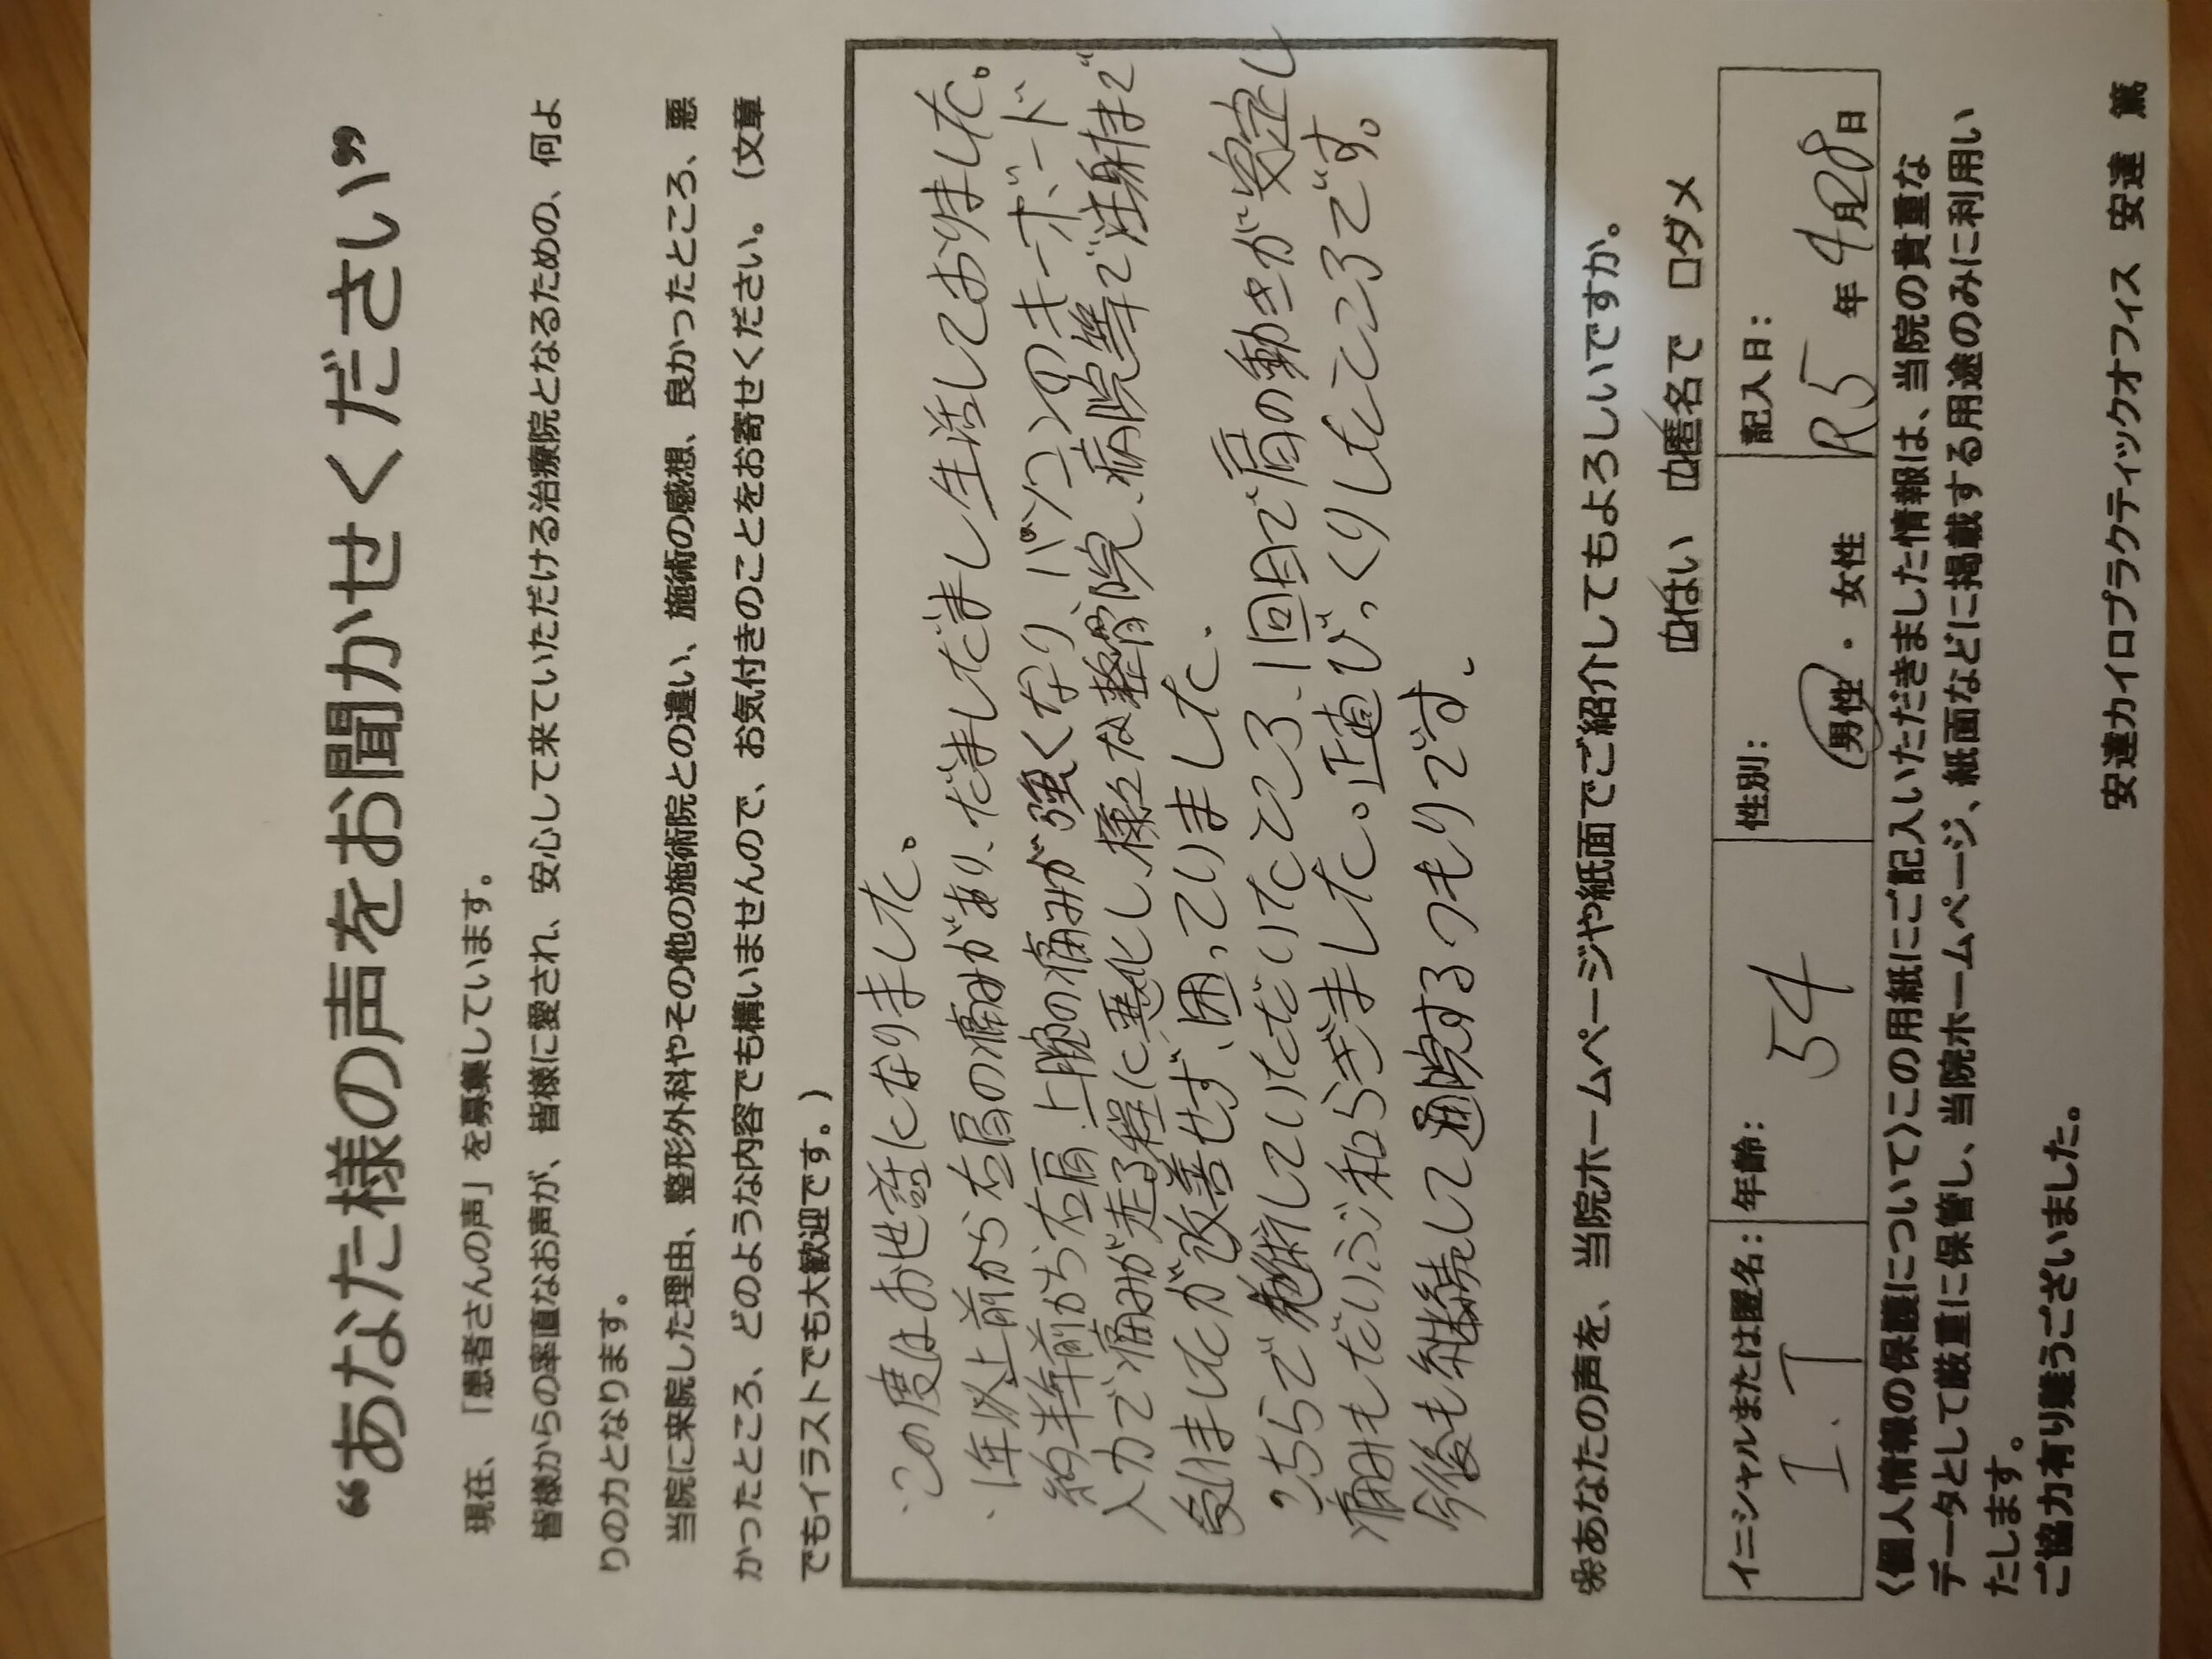 “あなた様の声をお聞かせください”
現在、「患者さんの声」を募集しています。
皆様からの率直なお声が、皆様に愛され、安心して来ていただける治療院となるための、何よ
りの力となります。
当院に来院した理由、整形外科やその他の施術院との違い、施術の感想、良かったところ、悪
かったところ、どのような内容でも構いませんので、お気付きのことをお寄せください。（文章
でもイラストでも大歓迎です。）
・この度はお世話になりました。
、1年以上前から右肩の痛みがあり、だましだまし生活しておりました。
約半年前から右肩、上腕の痛みが強くなり、パソコンのキーボード
入力で痛みが走る程に悪化し、様々な整骨院、病院等で注射まで
受けましたが改善せず、困っていました、
こちらで施術していただいたところ、1回目で肩の動きが安定し
痛みもだいぶ和らぎました。正直びっくりしたところです。
今後も継続して通院するつもりです、
※あなたの声を、当院ホームページや紙面でご紹介してもよろしいですか。
☑はい ☑匿名で □ダメ
イニシャルまたは匿名: I.T
年齢: 54
性別: 男性 ・ 女性
記入日: R5 年 4月28日
〈個人情報の保護について〉この用紙にご記入いただきました情報は、当院の貴重な
データとして厳重に保管し、当院ホームページ、紙面などに掲載する用途のみに利用い
たします。
ご協力有り難うございました。
安達カイロプラクティックオフィス 安達 篤